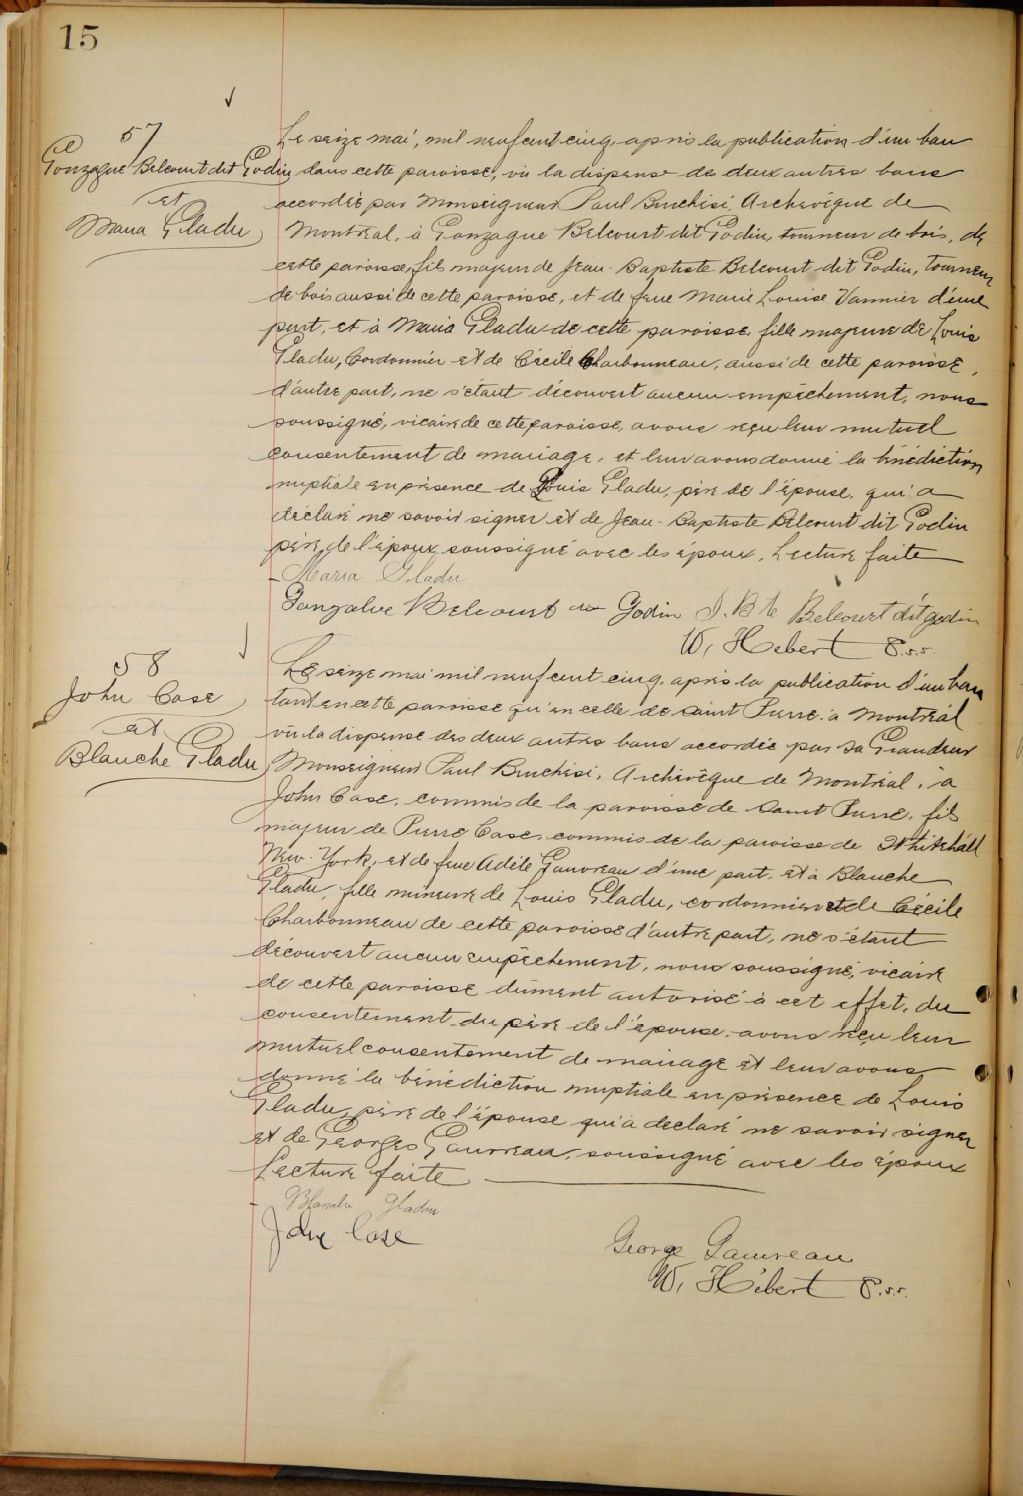 15
57
Gonzague Belcourt dit Godin
et
Maria Gladu
Le seize mai, mil neuf cent cinq, après la publication d'un ban
dans cette paroisse, vu la dispense de deux autres bans
accordée par Monseigneur Paul Bruchési, Archevêque de
Montréal, à Gonzague Belcourt dit Godin, tourneur de bois, de
cette paroisse, fils majeur de Jean-Baptiste Belcourt dit Godin, tourneur
de bois aussi de cette paroisse, et de feue Marie Louise Vannier d'une
part, et à Maria Gladu de cette paroisse, fille majeure de Louis
Gladu, Cordonnier et de Cécile Charbonneau, aussi de cette paroisse,
d'autre part, ne s'étant découvert aucun empêchement, nous
soussigné, vicaire de cette paroisse, avons reçu leur mutuel
consentement de mariage, et leur avons donné la bénédiction
nuptiale en présence de Louis Gladu, père de l'épouse, qui a
déclaré ne savoir signer et de Jean-Baptiste Belcourt dit Godin
père de l'époux, soussigné avec les époux. Lecture faite
Maria Gladu
Gonzalve Belcourt Godin J. Bte Belcourt dit godin
W. Hebert P.s.s.
58
John Case
et
Blanche Gladu
Le seize mai mil neuf cent cinq, après la publication d'un ban
tant en cette paroisse qu'en celle de Saint Pierre à Montréal
vu la dispense des deux autres bans accordée par Sa Grandeur
Monseigneur Paul Bruchési, Archevêque de Montréal, à
John Case, commis de la paroisse de Saint Pierre, fils
majeur de Pierre Case, commis de la paroisse de Whitehall
New-York, et de feue Adèle Gauvreau d'une part, et à Blanche
Gladu, fille mineure de Louis Gladu, cordonnier et de Cécile
Charbonneau de cette paroisse d'autre part, ne s'étant
découvert aucun empêchement, nous soussigné, vicaire
de cette paroisse dûment autorisé à cet effet, du
consentement du père de l'épouse, avons reçu leur
mutuel consentement de mariage et leur avons
donné la bénédiction nuptiale en présence de Louis
Gladu, père de l'épouse qui a déclaré ne savoir signer
et de Georges Gauvreau, soussigné avec les époux
Lecture faite
Gladu
John Case
George Gauvreau
W. Hébert P.s.s.